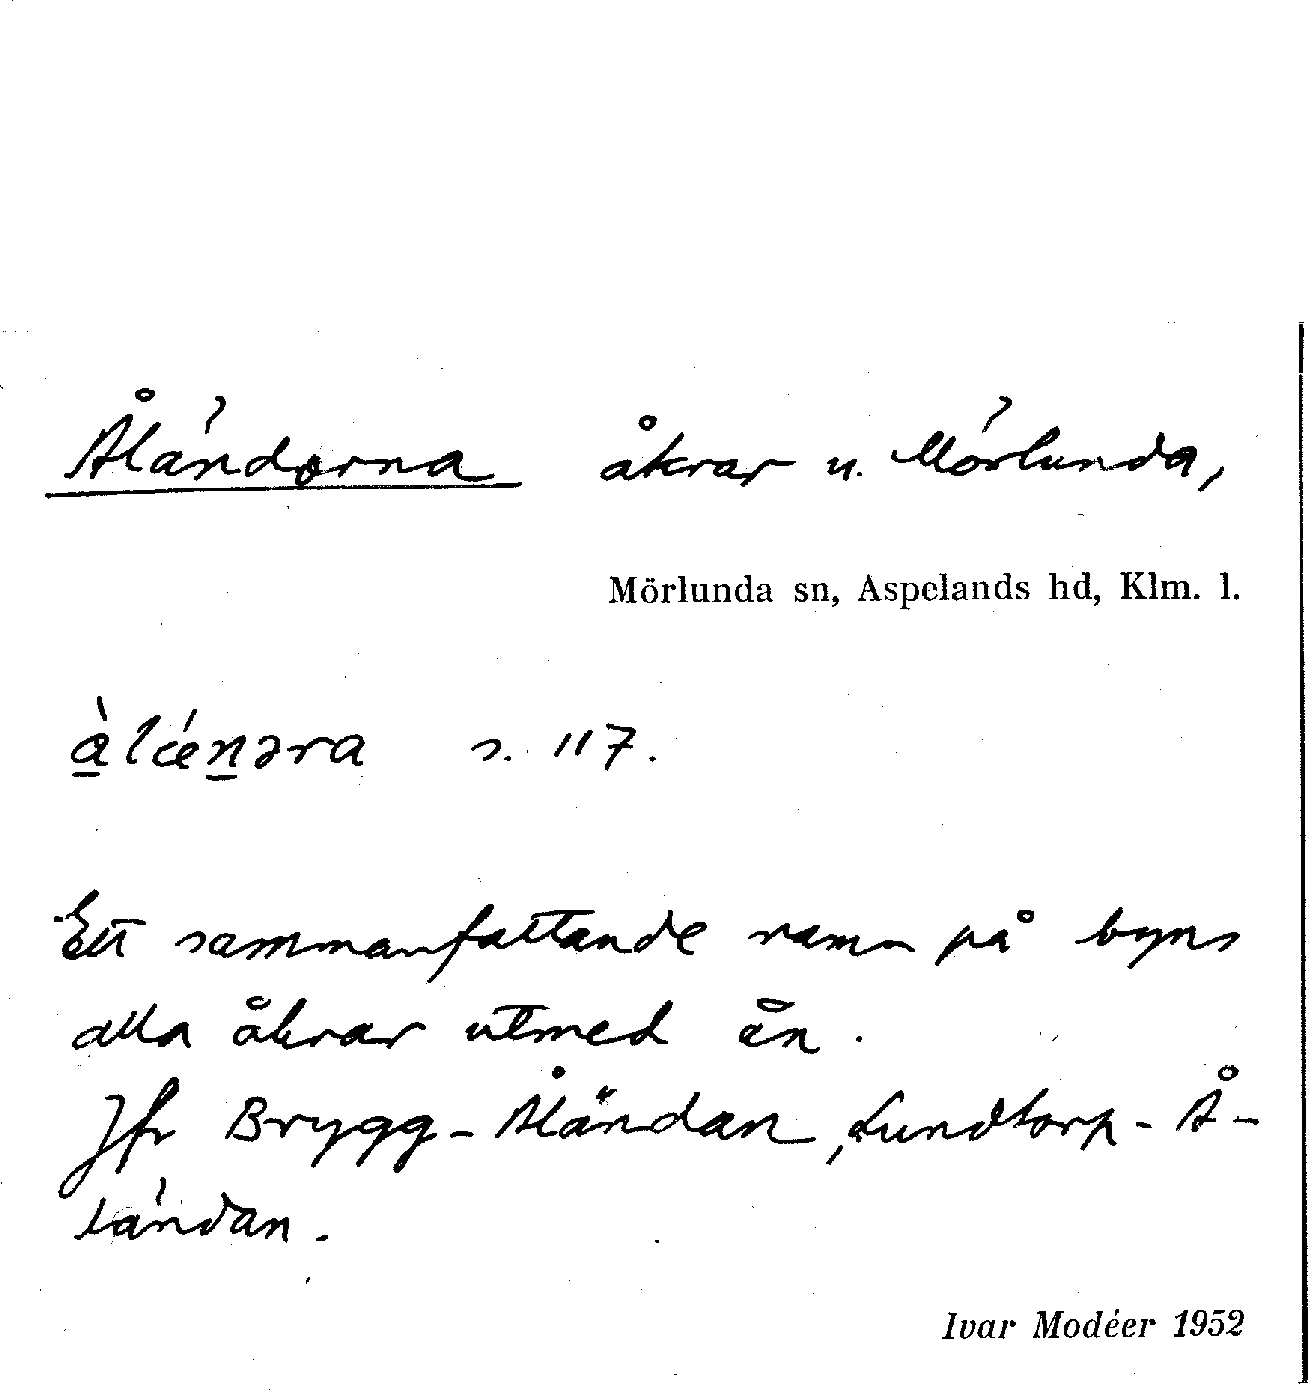 Åländorna åkrar u. Mörlunda,
Mörlunda sn, Aspelands hd, Klm. l.
à̠lǽn̠əra s. 117.
Ett sammanfattande namn på byns
alla åkrar utmed ån.
Jfr Brygg-Åländan, Lundtorp-Å-
ländan.
Ivar Modéer 1952